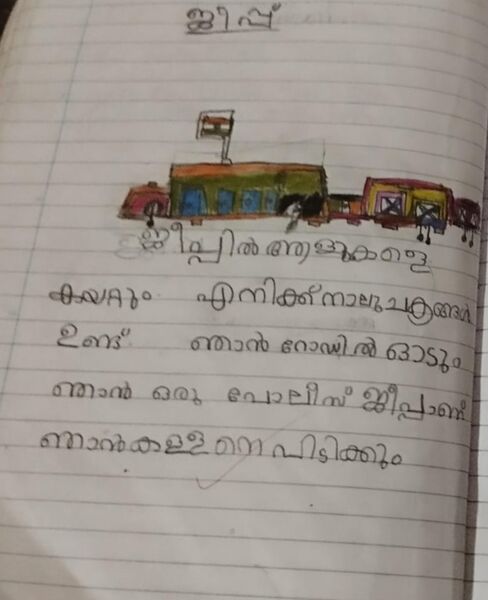 ജീപ്പ്
ജീപ്പിൽ ആളുകളെ
കയറ്റും എനിക്ക് നാലു ചക്രങ്ങൾ
ഉണ്ട് ഞാൻ റോഡിൽ ഓടും
ഞാൻ ഒരു പോലീസ് ജീപ്പാണ്
ഞാൻ കള്ളനെ പിടിക്കും